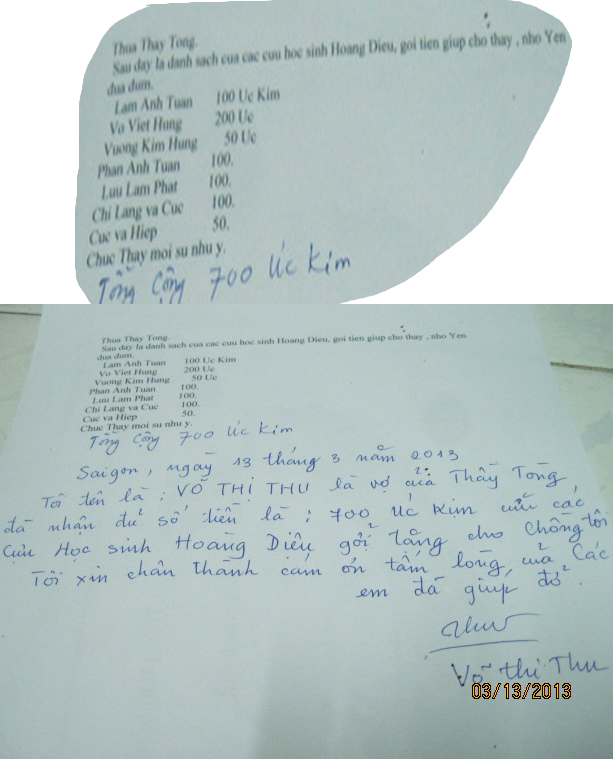 Thua Thay Tong.
Sau day la danh sach cua cac cuu hoc sinh Hoang Dieu, goi tien giup cho thay , nho Yen
dua dum.
Lam Anh Tuan 100 Uc Kim
Vo Viet Hung 200 Uc
Vuong Kim Hung 50 Uc
Phan Anh Tuan 100.
Luu Lam Phat 100.
Chi Lang va Cuc 100.
Cuc va Hiep 50.
Chuc Thay moi su nhu y.
Tổng Cộng 700 Úc Kim
Thua Thay Tong.
Sau day la danh sach cua cac cuu hoc sinh Hoang Dieu, goi tien giup cho thay , nho Yen
dua dum.
Lam Anh Tuan 100 Uc Kim
Vo Viet Hung 200 Uc
Vuong Kim Hung 50 Uc
Phan Anh Tuan 100.
Luu Lam Phat 100.
Chi Lang va Cuc 100.
Cuc va Hiep 50.
Chuc Thay moi su nhu y.
Tổng Cộng 700 Úc Kim
Saigon, ngày 13 tháng 3 năm 2013
Tôi tên là : VÕ THI THU là vợ của Thầy Tòng,
đã nhận đủ số tiền là : 700 Úc Kim của các
Cựu Học sinh Hoàng Diệu gởi tặng cho chồng tôi
Tôi xin chân thành cám ơn tấm lòng của Các
em đã giúp đỡ.
Thu
Võ thi Thu
03/13/2013